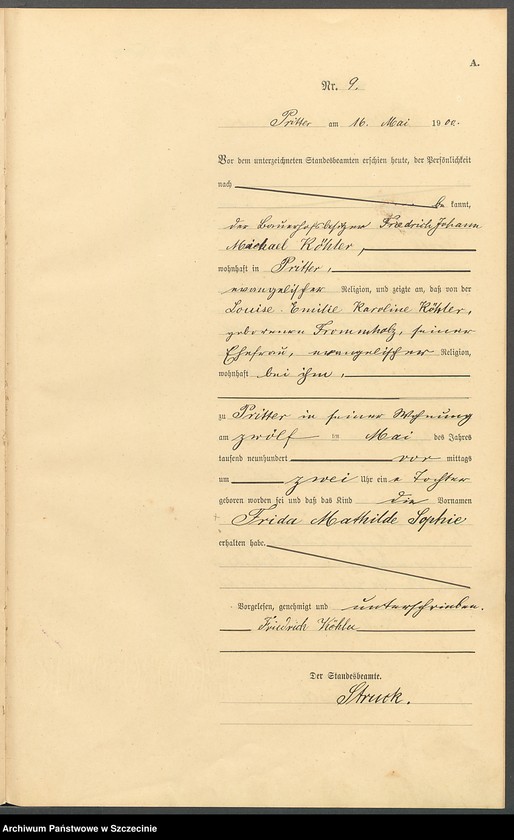 A.
Nr. 9.
Pritter am 16. Mai 1900.
Vor dem unterzeichneten Standesbeamten erschien heute, der Persönlichkeit
nach
be kannt,
der Bauerhofsbesitzer Friedrich Johann
Michael Köhler,
wohnhaft in Pritter,
evangelischer Religion, und zeigte an, daß von der
Louise Emilie Karoline Köhler,
geborenen Frommholz, seiner
Ehefrau, evangelischer Religion,
wohnhaft bei ihm,
zu Pritter in seiner Wohnung
am zwölf im Mai des Jahres
tausend neunhundert vor mittags
um zwei Uhr eine Tochter
geboren worden sei und daß das Kind die Vornamen
Frida Mathilde Sophie
erhalten habe.
Vorgelesen, genehmigt und unterschrieben.
Friedrich Köhler
Der Standesbeamte.
Struck.
Archiwum Państwowe w Szczecinie